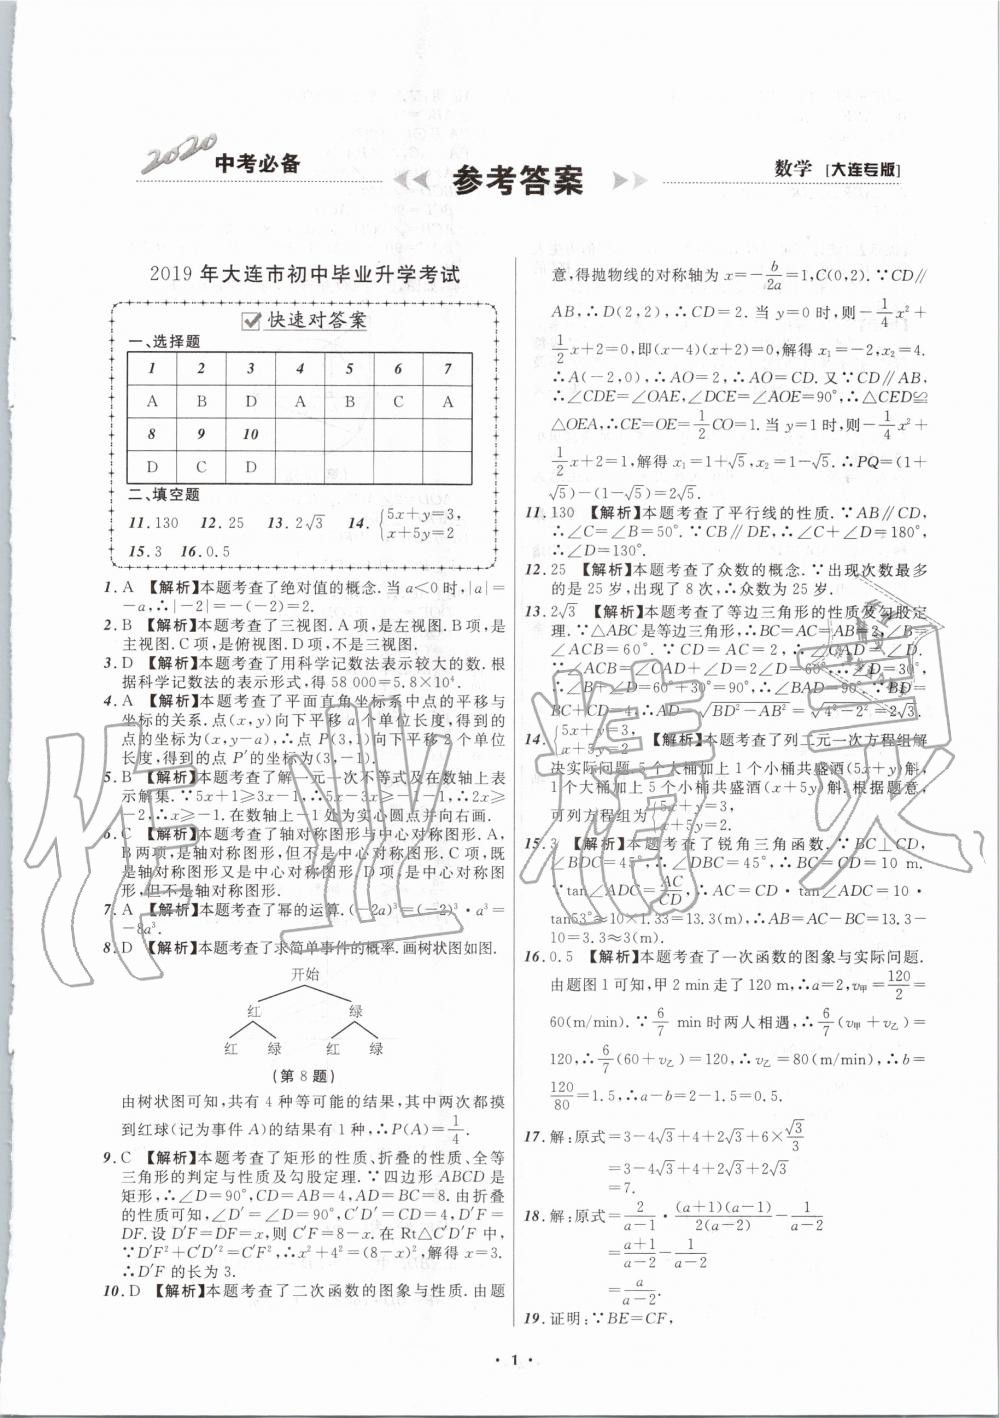 2020 中考必备
参考答案
数学 [大连专版]
2019 年大连市初中毕业升学考试
快速对答案
一、选择题
1 2 3 4 5 6 7
A B D A B C A
8 9 10
D C D
二、填空题
11.130 12.25 13.2√3 14.{5x+y=3, x+5y=2
15.3 16.0.5
1.A 【解析】本题考查了绝对值的概念.当 a<0 时,|a|=
-a,∴|-2|=-(-2)=2.
2.B 【解析】本题考查了三视图.A 项,是左视图.B 项,是
主视图.C 项,是俯视图.D 项,不是三视图.
3.D 【解析】本题考查了用科学记数法表示较大的数.根
据科学记数法的表示形式,得 58 000=5.8×10⁴.
4.A 【解析】本题考查了平面直角坐标系中点的平移与
坐标的关系.点(x,y)向下平移 a 个单位长度,得到的
点的坐标为(x,y-a),∴点 P(3,1)向下平移 2 个单位
长度,得到的点 P′的坐标为(3,-1).
5.B 【解析】本题考查了解一元一次不等式及在数轴上表
示解集.∵5x+1≥3x-1,∴5x-3x≥-1-1,∴2x≥
-2,∴x≥-1.在数轴上-1 处为实心圆点并向右画.
6.C 【解析】本题考查了轴对称图形与中心对称图形.A,
B 两项,是轴对称图形,但不是中心对称图形.C 项,既
是轴对称图形又是中心对称图形.D 项,是中心对称图
形,但不是轴对称图形.
7.A 【解析】本题考查了幂的运算.(-2a)³=(-2)³·a³=
-8a³.
8.D 【解析】本题考查了求简单事件的概率.画树状图如图.
开始
红 绿
红 绿 红 绿
(第 8 题)
由树状图可知,共有 4 种等可能的结果,其中两次都摸
到红球(记为事件 A)的结果有 1 种,∴P(A)=1/4.
9.C 【解析】本题考查了矩形的性质、折叠的性质、全等
三角形的判定与性质及勾股定理.∵四边形 ABCD 是
矩形,∴∠D=90°,CD=AB=4,AD=BC=8.由折叠
的性质可知,∠D′=∠D=90°,C′D′=CD=4,D′F=
DF.设 D′F=DF=x,则 C′F=8-x.在 Rt△C′D′F 中,
∵D′F²+C′D′²=C′F²,∴x²+4²=(8-x)²,解得 x=3.
∴D′F 的长为 3.
10.D 【解析】本题考查了二次函数的图象与性质.由题
意,得抛物线的对称轴为 x=-b/2a=1,C(0,2).∵CD∥
AB,∴D(2,2),∴CD=2.当 y=0 时,则-1/4x²+
1/2x+2=0,即(x-4)(x+2)=0,解得 x₁=-2,x₂=4.
∴A(-2,0),∴AO=2,∴AO=CD.又∵CD∥AB,
∴∠CDE=∠OAE,∠DCE=∠AOE=90°,∴△CED≌
△OEA,∴CE=OE=1/2CO=1.当 y=1 时,则-1/4x²+
1/2x+2=1,解得 x₁=1+√5,x₂=1-√5.∴PQ=(1+
√5)-(1-√5)=2√5.
11.130 【解析】本题考查了平行线的性质.∵AB∥CD,
∴∠C=∠B=50°.∵CB∥DE,∴∠C+∠D=180°,
∴∠D=130°.
12.25 【解析】本题考查了众数的概念.∵出现次数最多
的是 25 岁,出现了 8 次,∴众数为 25 岁.
13.2√3 【解析】本题考查了等边三角形的性质及勾股定
理.∵△ABC 是等边三角形,∴BC=AC=AB=2,∠B=
∠ACB=60°.∵CD=AC=2,∴∠CAD=∠D.
∵∠ACB=∠CAD+∠D=2∠D=60°,∴∠D=30°,
∴∠B+∠D=60°+30°=90°,∴∠BAD=90°.∵BD=
BC+CD=4,∴AD=√(BD²-AB²)=√(4²-2²)=2√3.
14.{5x+y=3, x+5y=2 【解析】本题考查了列二元一次方程组解
决实际问题.5 个大桶加上 1 个小桶共盛酒(5x+y)斛,
1 个大桶加上 5 个小桶共盛酒(x+5y)斛.根据题意,
可列方程组为{5x+y=3, x+5y=2.
15.3 【解析】本题考查了锐角三角函数.∵BC⊥CD,
∠BDC=45°,∴∠DBC=45°,∴BC=CD=10 m.
∵tan∠ADC=AC/CD,∴AC=CD·tan∠ADC=10·
tan53°≈10×1.33=13.3(m),∴AB=AC-BC=13.3-
10=3.3≈3(m).
16.0.5 【解析】本题考查了一次函数的图象与实际问题.
由题图 1 可知,甲 2 min 走了 120 m,∴a=2,v甲=120/2=
60(m/min).∵6/7 min 时两人相遇,∴6/7(v甲+v乙)=
120,∴6/7(60+v乙)=120,∴v乙=80(m/min),∴b=
120/80=1.5,∴a-b=2-1.5=0.5.
17.解:原式=3-4√3+4+2√3+6×√3/3
=3-4√3+4+2√3+2√3
=7.
18.解:原式=2/(a-1)·(a+1)(a-1)/2(a-2)-1/(a-2)
=(a+1)/(a-2)-1/(a-2)
=a/(a-2).
19.证明:∵BE=CF,
· 1 ·
作业精灵